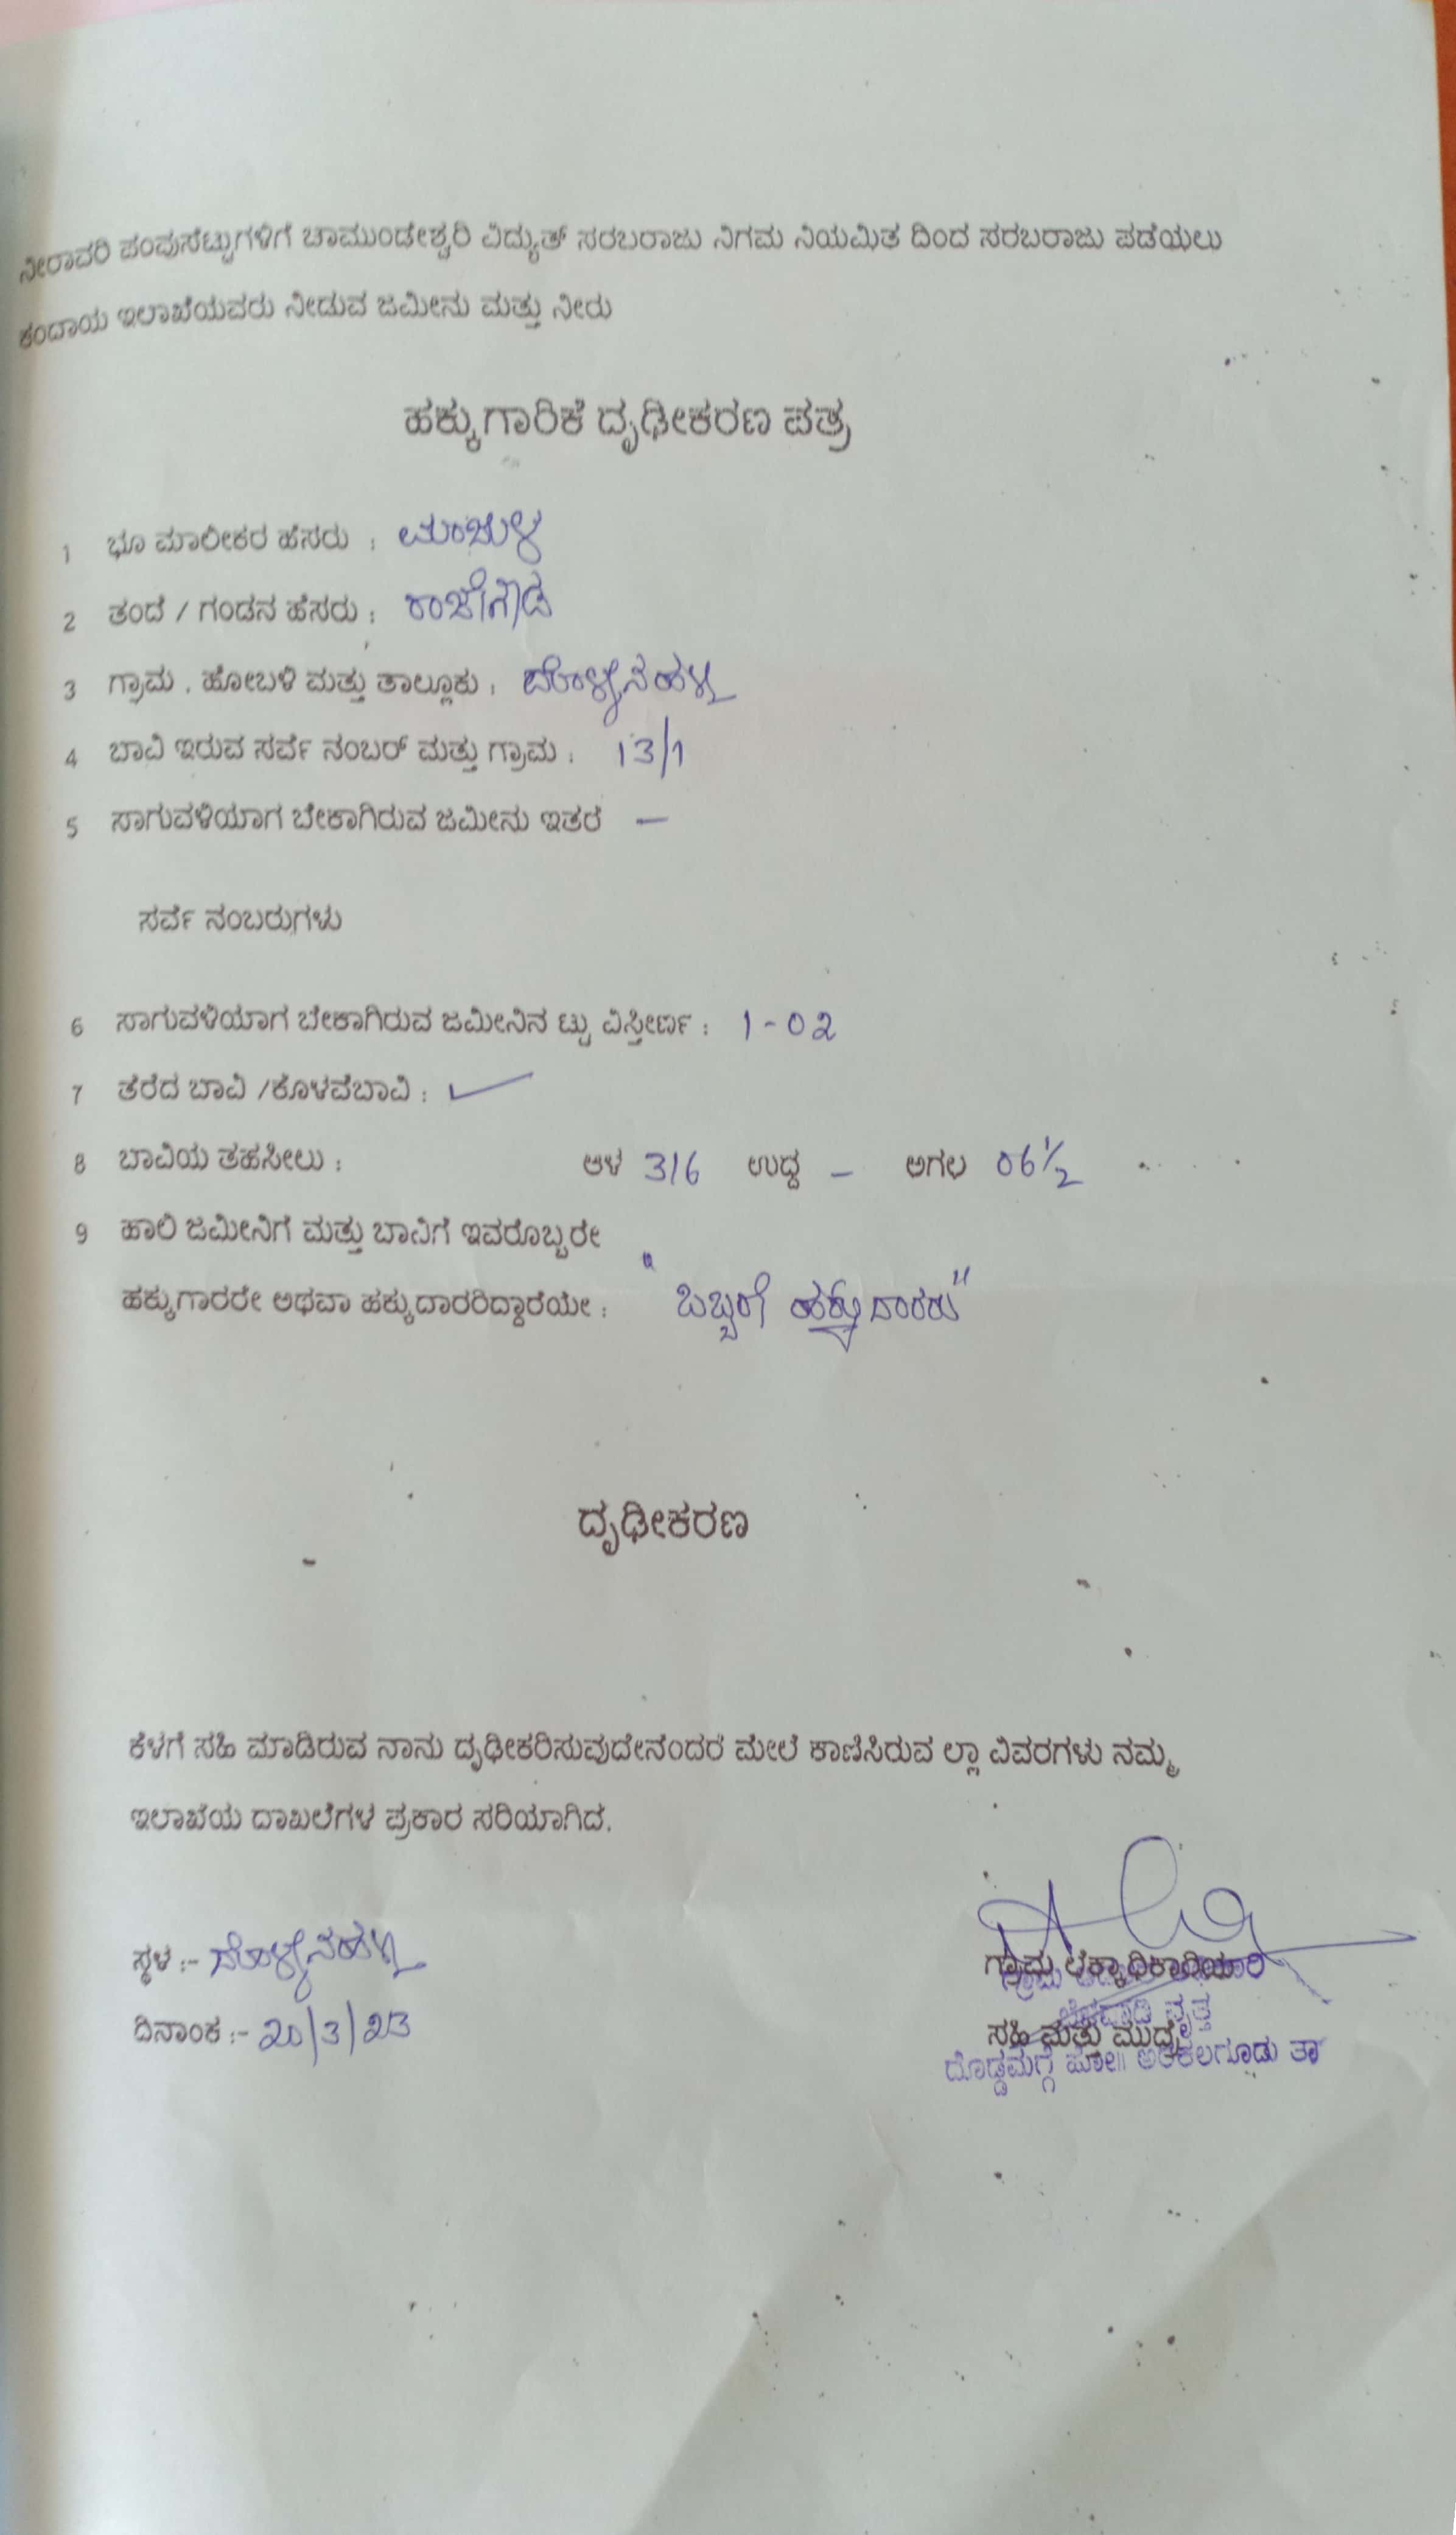 ನೀರಾವರಿ ಪಂಪುಸೆಟ್ಟುಗಳಿಗೆ ಚಾಮುಂಡೇಶ್ವರಿ ವಿದ್ಯುತ್ ಸರಬರಾಜು ನಿಗಮ ನಿಯಮಿತ ದಿಂದ ಸರಬರಾಜು ಪಡೆಯಲು
ಕಂದಾಯ ಇಲಾಖೆಯವರು ನೀಡುವ ಜಮೀನು ಮತ್ತು ನೀರು
ಹಕ್ಕುಗಾರಿಕೆ ದೃಢೀಕರಣ ಪತ್ರ
1 ಭೂ ಮಾಲೀಕರ ಹೆಸರು : ಮಂಜುಳ
2 ತಂದೆ / ಗಂಡನ ಹೆಸರು : ರಾಜೇಗೌಡ
3 ಗ್ರಾಮ . ಹೋಬಳಿ ಮತ್ತು ತಾಲ್ಲೂಕು :
4 ಬಾವಿ ಇರುವ ಸರ್ವೆ ನಂಬರ್ ಮತ್ತು ಗ್ರಾಮ : 13/1
5 ಸಾಗುವಳಿಯಾಗ ಬೇಕಾಗಿರುವ ಜಮೀನು ಇತರೆ —
ಸರ್ವೆ ನಂಬರುಗಳು
6 ಸಾಗುವಳಿಯಾಗ ಬೇಕಾಗಿರುವ ಜಮೀನಿನ ಟ್ಟು ವಿಸ್ತೀರ್ಣ : 1-02
7 ತೆರೆದ ಬಾವಿ /ಕೊಳವೆಬಾವಿ : ✓
8 ಬಾವಿಯ ತಹಸೀಲು : ಆಳ 316 ಉದ್ದ – ಅಗಲ 06½
9 ಹಾಲಿ ಜಮೀನಿಗೆ ಮತ್ತು ಬಾವಿಗೆ ಇವರೊಬ್ಬರೇ
ಹಕ್ಕುಗಾರರೇ ಅಥವಾ ಹಕ್ಕುದಾರರಿದ್ದಾರೆಯೇ : "ಒಬ್ಬರೇ ಹಕ್ಕುದಾರರು"
ದೃಢೀಕರಣ
ಕೆಳಗೆ ಸಹಿ ಮಾಡಿರುವ ನಾನು ದೃಢೀಕರಿಸುವುದೇನೆಂದರೆ ಮೇಲೆ ಕಾಣಿಸಿರುವ ಲ್ಲಾ ವಿವರಗಳು ನಮ್ಮ
ಇಲಾಖೆಯ ದಾಖಲೆಗಳ ಪ್ರಕಾರ ಸರಿಯಾಗಿದೆ.
ಸ್ಥಳ :-
ಗ್ರಾಮ ಲೆಕ್ಕಾಧಿಕಾರಿಯ
ವೃತ್ತ
ದಿನಾಂಕ :- 20/3/23
ಸಹಿ ಮತ್ತು ಮುದ್ರ
ದೊಡ್ಡಮಗ್ಗೆ ಹೋ|| ಅರಕಲಗೂಡು ತಾ